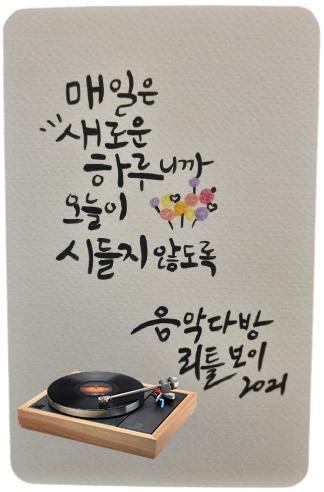 매일은
새로운
하루니까
오늘이
시들지 않도록
음악다방
리틀보이
2021